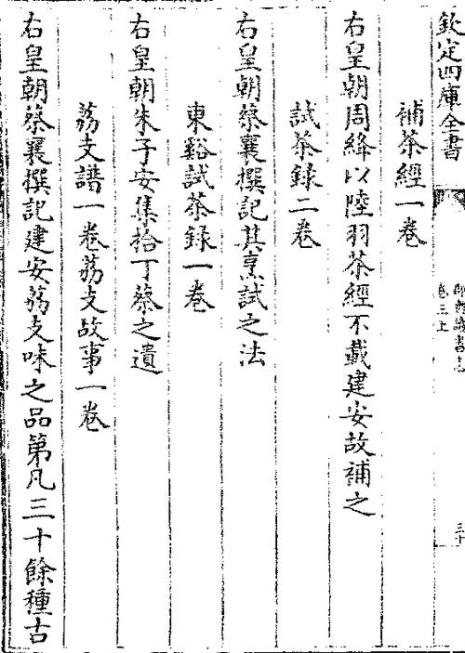 欽定四庫全書
郡齋讀書志
卷三上
三十
補茶經一卷
右皇朝周絳以陸羽茶經不載建安故補之
試茶錄二卷
右皇朝蔡襄撰記其烹試之法
東谿試茶錄一卷
右皇朝朱子安集拾丁蔡之遺
荔支譜一卷荔支故事一卷
右皇朝蔡襄撰記建安荔支味之品第凡三十餘種古